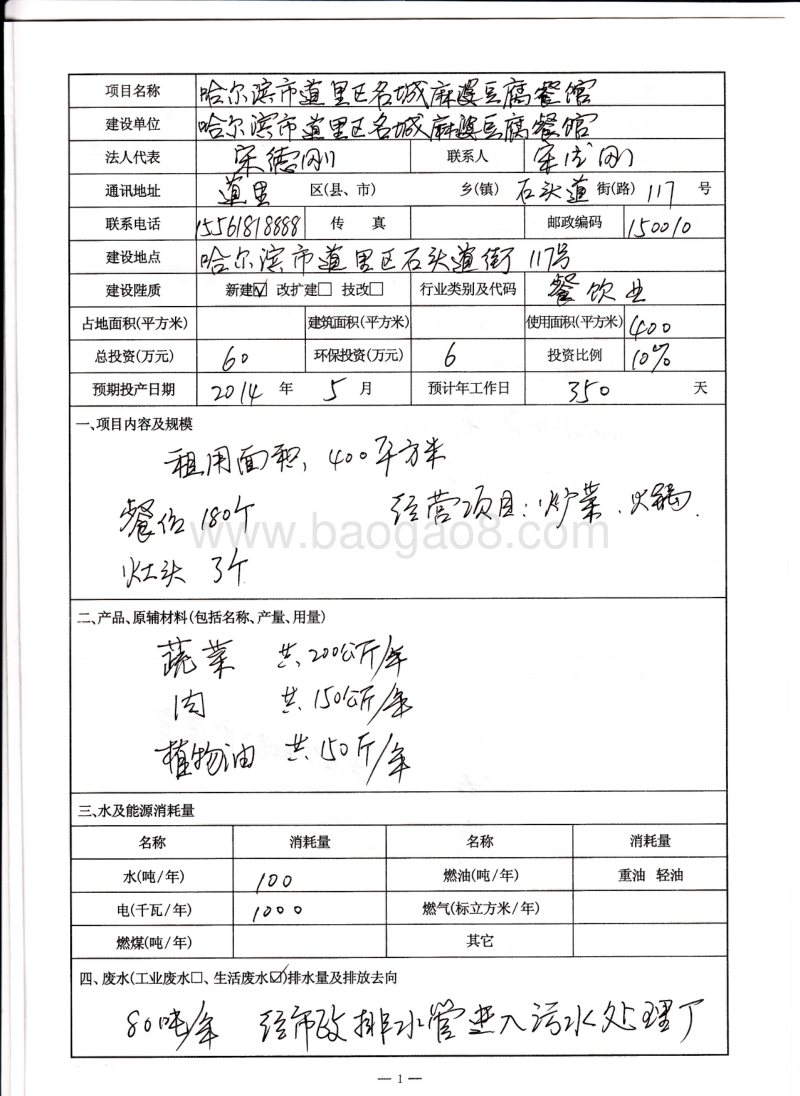 项目名称 哈尔滨市道里区名城麻婆豆腐餐馆
建设单位 哈尔滨市道里区名城麻婆豆腐餐馆
法人代表 宋德刚 联系人 宋德刚
通讯地址 道里 区(县、市) 乡(镇) 石头道 街(路) 117 号
联系电话 15561818888 传 真 邮政编码 150010
建设地点 哈尔滨市道里区石头道街117号
建设陛质 新建☑ 改扩建□ 技改□ 行业类别及代码 餐饮业
占地面积(平方米) 建筑面积(平方米) 使用面积(平方米) 400
总投资(万元) 60 环保投资(万元) 6 投资比例 10%
预期投产日期 2014 年 5 月 预计年工作日 350 天
一、项目内容及规模
租用面积, 400平方米
餐位 180个 经营项目: 炒菜、火锅.
www.baogao8.com
灶头 3个
二、产品、原辅材料(包括名称、产量、用量)
蔬菜 共200公斤/年
肉 共150公斤/年
植物油 共150斤/年
三、水及能源消耗量
名称 消耗量 名称 消耗量
水(吨/年) 100 燃油(吨/年) 重油 轻油
电(千瓦/年) 1000 燃气(标立方米/年)
燃煤(吨/年) 其它
四、废水(工业废水□、生活废水☑)排水量及排放去向
80吨/年 经市政排水管进入污水处理厂
— 1 —